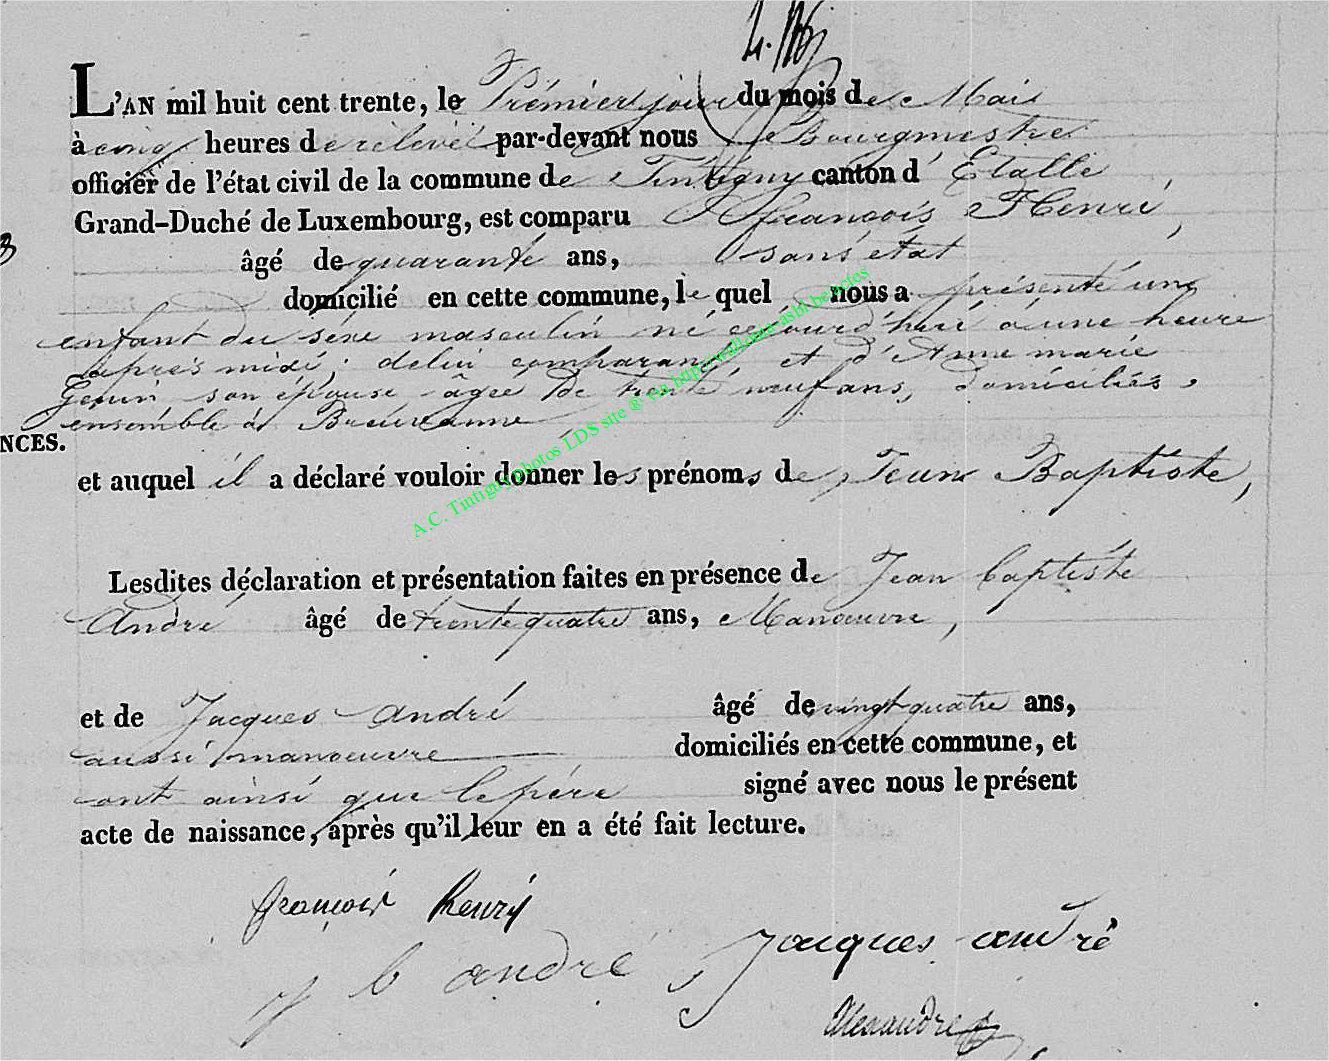 L'AN mil huit cent trente, le Prémier jour du mois de Mai
à cinq heures de rélevé par-devant nous Bourgmestre
officier de l'état civil de la commune de Tintigny canton d'Etalle,
Grand-Duché de Luxembourg, est comparu François Henri,
âgé de quarante ans, sans état
domicilié en cette commune, le quel nous a présenté un
enfant du séxe masculin né cejourd'hui à une heure
après midi, delui comparant et d'Anne marie
Genin son épouse âgée de trente neuf ans, domiciliés
ensémble à Breuvanne
NCES.
et auquel il a déclaré vouloir donner les prénoms de Jean Baptiste,
A.C. Tintigny photos LDS site ® via http://wallonia-asbl.be/actes
Lesdites déclaration et présentation faites en présence de Jean baptiste
André âgé de trente quatre ans, Manoeuvre,
et de Jacques André âgé de vingt quatre ans,
aussi manoeuvre domiciliés en cette commune, et
ont ainsi que le père signé avec nous le présent
acte de naissance, après qu'il leur en a été fait lecture.
françois henry
j b andré
Jacques andré
Alexandre